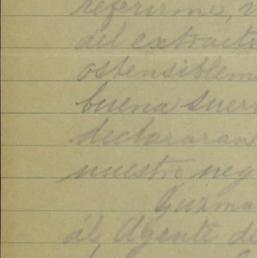 referirme, v
del extracto
ostensiblem
buena suer
declararan
nuestro neg
Guzma
al Agente de